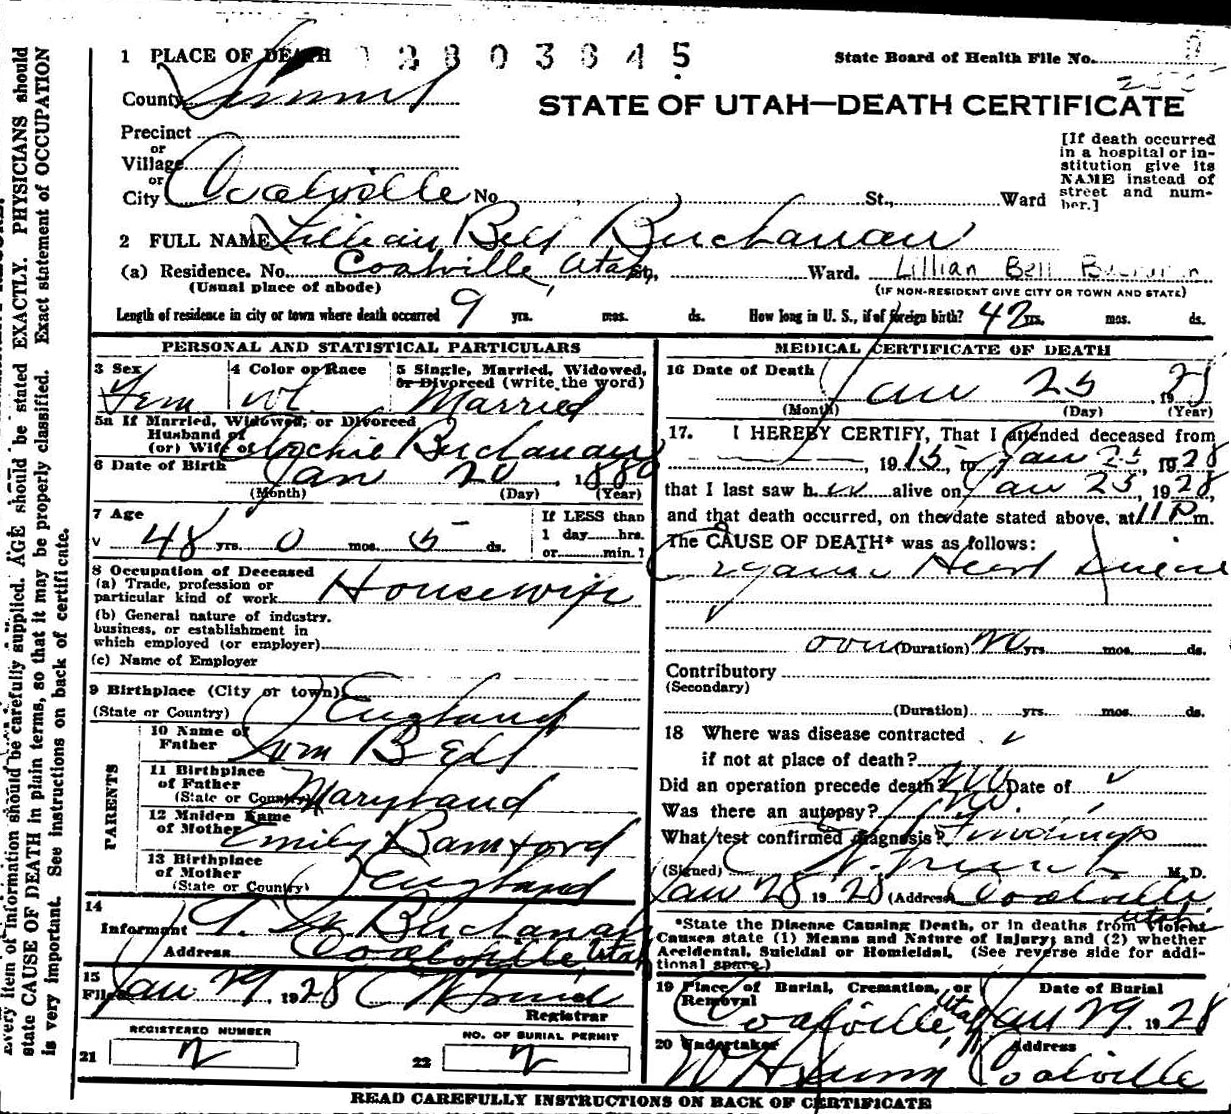 Every item of information should be carefully supplied. AGE should be stated EXACTLY. PHYSICIANS should
state CAUSE OF DEATH in plain terms, so that it may be properly classified. Exact statement of OCCUPATION
is very important. See instructions on back of certificate.
1 PLACE OF DEATH 2803645 State Board of Health File No.
County Summit
STATE OF UTAH—DEATH CERTIFICATE
Precinct
or
Village
or
City Coalville No. St., Ward
[If death occurred
in a hospital or in-
stitution give its
NAME instead of
street and num-
ber.]
2 FULL NAME Lillian Bell Buchanan
(a) Residence. No. Coalville, Utah St., Ward. Lillian Bell
(Usual place of abode) (IF NON-RESIDENT GIVE CITY OR TOWN AND STATE)
Length of residence in city or town where death occurred 9 yrs. mos. ds. How long in U. S., if of foreign birth? 42 yrs. mos. ds.
PERSONAL AND STATISTICAL PARTICULARS
3 Sex 4 Color or Race 5 Single, Married, Widowed,
or Divorced (write the word)
Fem Wh Married
5a If Married, Widowed, or Divorced
Husband of
(or) Wife of Archie Buchanan
6 Date of Birth Jan 20, 1880
(Month) (Day) (Year)
7 Age If LESS than
1 day hrs.
48 yrs. 0 mos. 5 ds. or min.?
8 Occupation of Deceased
(a) Trade, profession or
particular kind of work Housewife
(b) General nature of industry,
business, or establishment in
which employed (or employer)
(c) Name of Employer
9 Birthplace (City or town)
(State or Country) England
PARENTS
10 Name of
Father Wm Bell
11 Birthplace
of Father
(State or Country) Maryland
12 Maiden Name
of Mother Emily Bamford
13 Birthplace
of Mother
(State or Country) England
14
Informant Buchanan
Address Coalville, Utah
15
Filed Jan 29 1928
Registrar
REGISTERED NUMBER NO. OF BURIAL PERMIT
21 2 22 2
MEDICAL CERTIFICATE OF DEATH
16 Date of Death Jan 25 1928
(Month) (Day) (Year)
17. I HEREBY CERTIFY, That I attended deceased from
, 1915, to Jan 25, 1928
that I last saw h er alive on Jan 25, 1928,
and that death occurred, on the date stated above, at 11 P m.
The CAUSE OF DEATH* was as follows:
Organic Heart Disease
over (Duration) yrs. mos. ds.
Contributory
(Secondary)
(Duration) yrs. mos. ds.
18 Where was disease contracted
if not at place of death?
Did an operation precede death? No Date of
Was there an autopsy? No.
What test confirmed diagnosis? Findings
(Signed) M. D.
Jan 28 1928 (Address) Coalville
Utah
*State the Disease Causing Death, or in deaths from Violent
Causes state (1) Means and Nature of Injury; and (2) whether
Accidental, Suicidal or Homicidal. (See reverse side for addi-
tional space.)
19 Place of Burial, Cremation, or Date of Burial
Removal
Coalville, Utah Jan 29, 1928
20 Undertaker Address
Coalville
READ CAREFULLY INSTRUCTIONS ON BACK OF CERTIFICATE